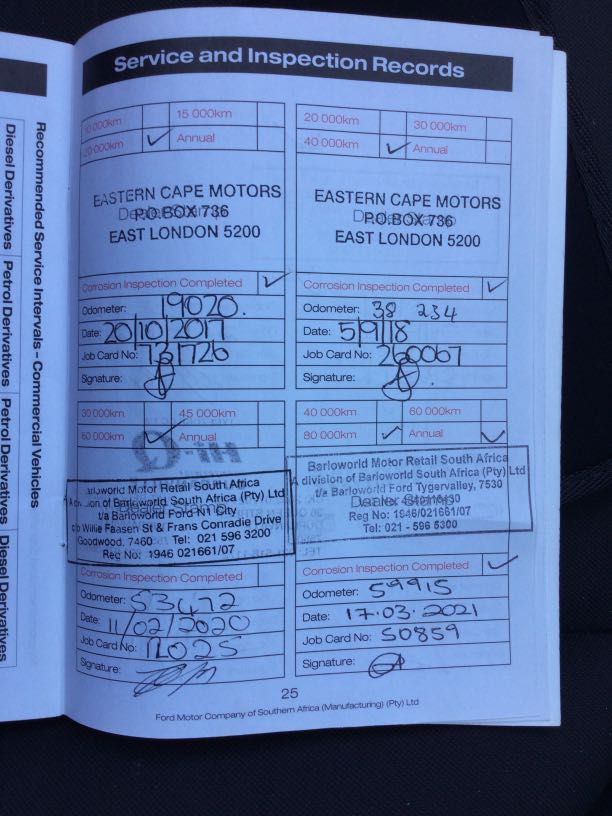 Service and Inspection Records
10 000km 15 000km
20 000km ✓ Annual
EASTERN CAPE MOTORS
P.O. BOX 736
EAST LONDON 5200
Corrosion Inspection Completed ✓
Odometer: 19020.
Date: 20/10/2017
Job Card No: 731726
Signature:
20 000km 30 000km
40 000km ✓ Annual
EASTERN CAPE MOTORS
P.O. BOX 736
EAST LONDON 5200
Corrosion Inspection Completed ✓
Odometer: 38 234
Date: 5/9/18
Job Card No: 260067
Signature:
30 000km 45 000km
60 000km ✓ Annual
Barloworld Motor Retail South Africa
A division of Barloworld South Africa (Pty) Ltd
t/a Barloworld Ford N1 City
c/o Willie Faasen St & Frans Conradie Drive
Goodwood, 7460 Tel: 021 596 3200
Reg No: 1946 021661/07
Corrosion Inspection Completed
Odometer: 53472
Date: 11/02/2020
Job Card No: 11025
Signature:
40 000km 60 000km
80 000km ✓ Annual ✓
Barloworld Motor Retail South Africa
A division of Barloworld South Africa (Pty) Ltd
t/a Barloworld Ford Tygervalley, 7530
Dealer Stamp
Reg No: 1946/021661/07
Tel: 021 - 596 5300
Corrosion Inspection Completed ✓
Odometer: 59915
Date: 17.03.2021
Job Card No: 50859
Signature:
25
Ford Motor Company of Southern Africa (Manufacturing) (Pty) Ltd
Recommended Service Intervals – Commercial Vehicles
Diesel Derivatives Petrol Derivatives Petrol Derivatives Diesel Derivatives